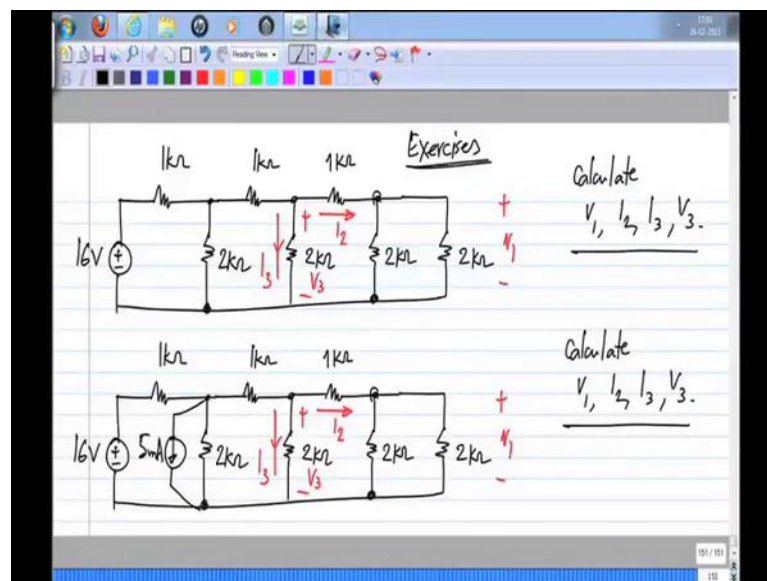 17:01
28-02-2013
Reading View
B I
Exercises
1kΩ 1kΩ 1kΩ
16V 2kΩ I3 + I2 2kΩ V3 - 2kΩ 2kΩ + V1 -
Calculate
V1, I2, I3, V3.
1kΩ 1kΩ 1kΩ
16V 5mA 2kΩ I3 + I2 2kΩ V3 - 2kΩ 2kΩ + V1 -
Calculate
V1, I2, I3, V3.
151 / 151
151